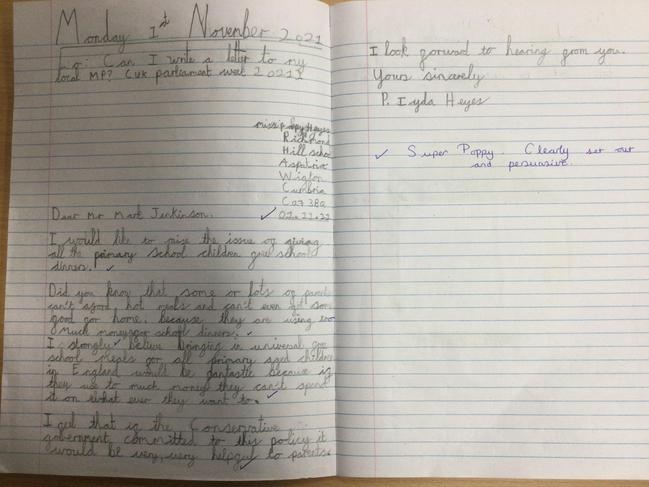 Monday 1st November 2021
L.O: Can I write a letter to my
local MP? (UK parliament week 2021)
miss poppy Heyes
Richmond
Hill school
Aspatria
Wigton
Cumbria
CA7 3BQ
02.11.22
Dear Mr Mark Jenkinson.
I would like to raise the issue og giving
all the primary school children gree school
dinners.
Did you know that some or lots og parents
can't agord hot meals and can't even get som
good gor home. because they are using too
much money gor school dinners.
I stongly believe bringing in universal gree
school meals gor all primary aged children
in England would be gantastic because ig
they use to much money they can't spend
it on what ever they want to.
I geel that ig the Conservative
government, committed to this policy it
would be very, very helpgul to parents.
I look gorward to hearing grom you.
Yours sincerely
P. Iyda Heyes
Super Poppy. Clearly set out
and persuasive.